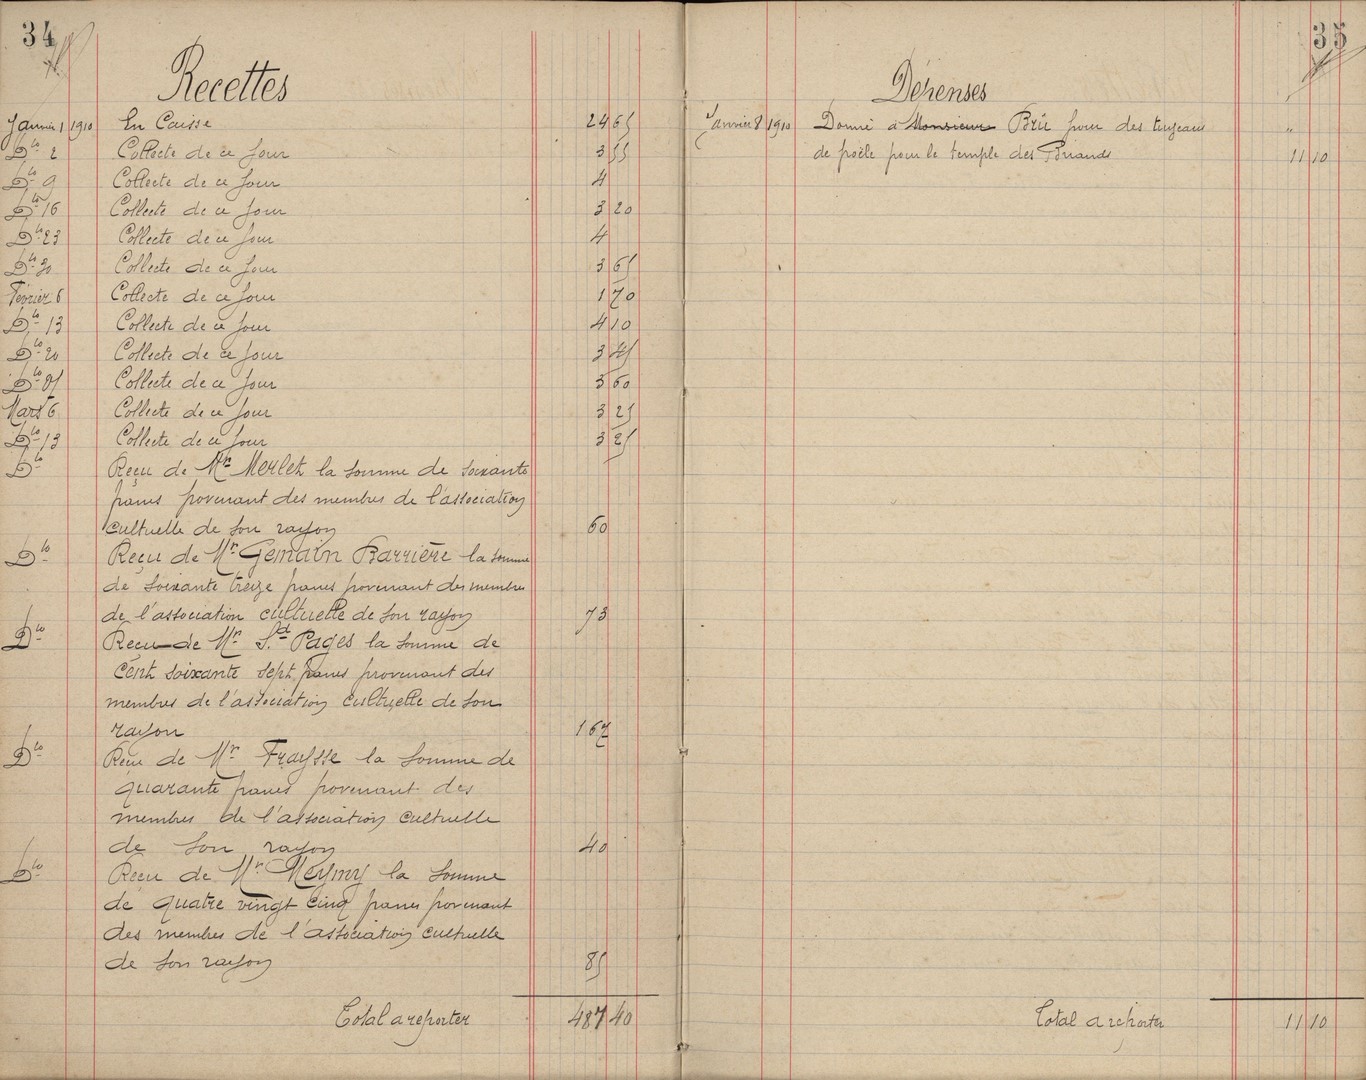 34
Recettes
Janvier 1 1910 En Caisse 24 65
Dto 2 Collecte de ce Jour 3 55
Dto 9 Collecte de ce Jour 4
Dto 16 Collecte de ce Jour 3 20
Dto 23 Collecte de ce Jour 4
Dto 30 Collecte de ce Jour 3 65
Février 6 Collecte de ce Jour 1 70
Dto 13 Collecte de ce Jour 4 10
Dto 20 Collecte de ce Jour 3 45
Dto Collecte de ce Jour 3 60
Mars 6 Collecte de ce Jour 3 25
Dto 13 Collecte de ce Jour 3 25
Dto Reçu de Mr Merlet la somme de soixante
francs provenant des membres de l'association
cultuelle de son rayon 60
Dto Reçu de Mr Gemain Barrière la somme
de soixante treize francs provenant des membres
de l'association cultuelle de son rayon 73
Dto Reçu de Mr Sd Pagès la somme de
cent soixante sept francs provenant des
membres de l'association cultuelle de son
rayon 167
Dto Reçu de Mr Fraysse la somme de
quarante francs provenant des
membres de l'association cultuelle
de son rayon 40
Dto Reçu de Mr Meymy la somme
de quatre vingt cinq francs provenant
des membres de l'association cultuelle
de son rayon 85
Total a reporter 487 40
35
Dépenses
Janvier 8 1910 Donné a Monsieur Brû pour des tuyeaus "
de poële pour le temple des Briands 11 10
Total a reporter 11 10